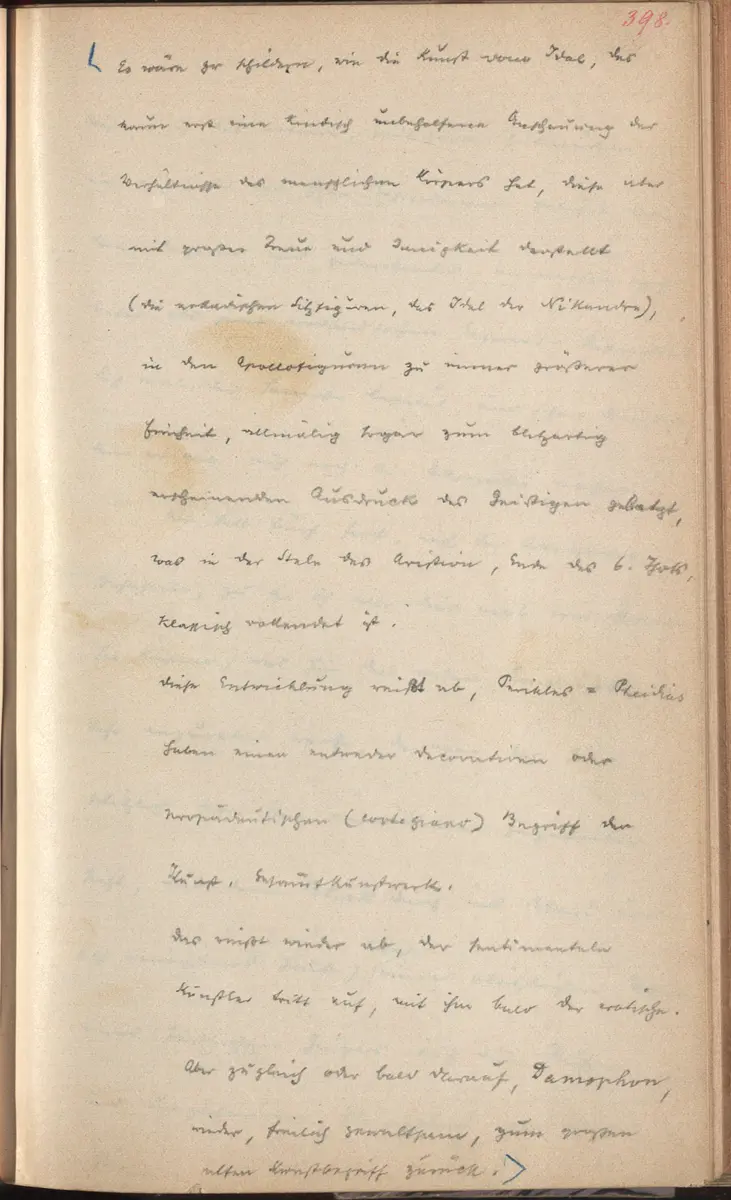 398.
Es wäre zu schildern, wie die Kunst vom Idol, das
kaum erst eine kindisch unbeholfene Anschauung der
Verhältnisse des menschlichen Körpers hat, diese aber
mit großer Treue und Innigkeit darstellt
(die archaischen Sitzfiguren, das Idol der Nikandre),
in den Apollofiguren zu immer größerer
Freiheit, allmälig sogar zum blitzartig
erscheinenden Ausdruck des Geistigen gelangt,
was in der Stele des Aristion, Ende des 6. Jhdts,
klassisch vollendet ist.
Diese Entwicklung reißt ab, Perikles = Pheidias
haben einen entweder decorativen oder
propädeutischen (cortegiano) Begriff der
Kunst. Gesamtkunstwerk.
Das reißt wieder ab, der sentimentale
Künstler tritt auf, mit ihm bald der erotische.
Aber zugleich oder bald darauf, Damophon,
wieder, freilich gewaltsam, zum großen
alten Kunstbegriff zurück.